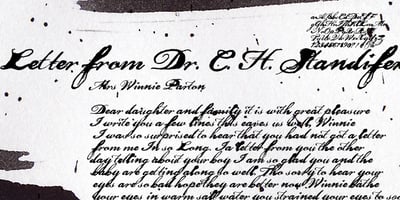 Aa Bb Cc Dd Ee Ff
Letter from Dr. C. H. Standifer
Mrs Winnie Parton
Dear daughter and family it is with great pleasure
I write you a few lines this eaves us well. Winnie
I was so surprised to hear that you had not got a letter
from me In so Long. Ja letter from you the other
day telling about your boy I am so glad you and the
baby are getting along so well. Tho sorry to hear your
eyes are so bad hope they are better now Winnie bathe
your eyes in warm salt water you strained your eyes to soon